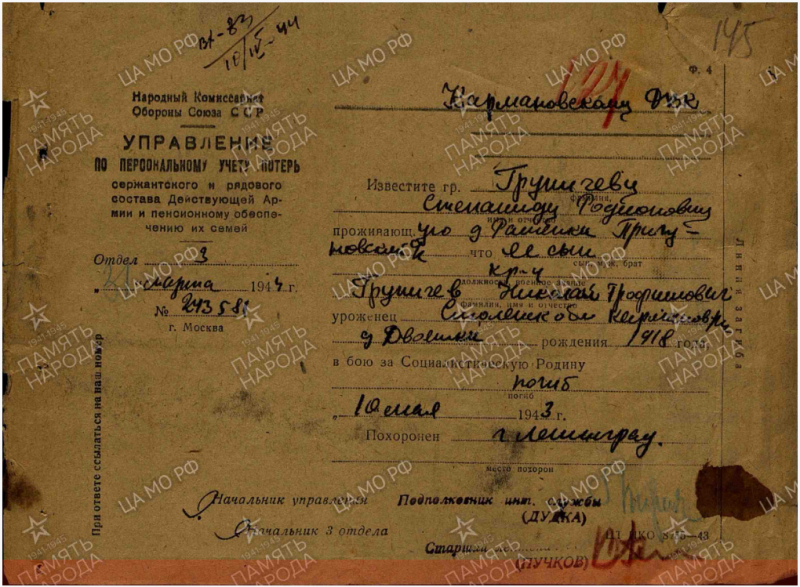 вх-83
10/IV-44
145
127
Ф. 4
Народный Комиссариат
Обороны Союза ССР
УПРАВЛЕНИЕ
ПО ПЕРСОНАЛЬНОМУ УЧЕТУ ПОТЕРЬ
сержантского и рядового
состава Действующей Ар-
мии и пенсионному обеспе-
чению их семей
Отдел 3
марта 1944 г.
№ 243581
г. Москва
При ответе ссылаться на наш номер
Кармановскому РВК
Известите гр. Груничеву
фамилия,
Степаниду Родионовну
имя и отчество
прожива­ющ. ую д. Раменки
что ее сын
сын, муж, брат
кр-ц
должность, военное звание
Груничев Николай Трофимович
фамилия, имя и отчество
уроженец Смоленской обл
д Двоенки рождения 1918 года
в бою за Социалистическую Родину
погиб
погиб
10 мая 1943 г.
Похоронен г. Ленинград.
место похорон
Начальник управления Подполковник инт. службы
(ДУДКА)
Начальник 3 отдела
Старший
(ПУЧКОВ)
Линия загиба
ЦА МО РФ
ПАМЯТЬ
НАРОДА